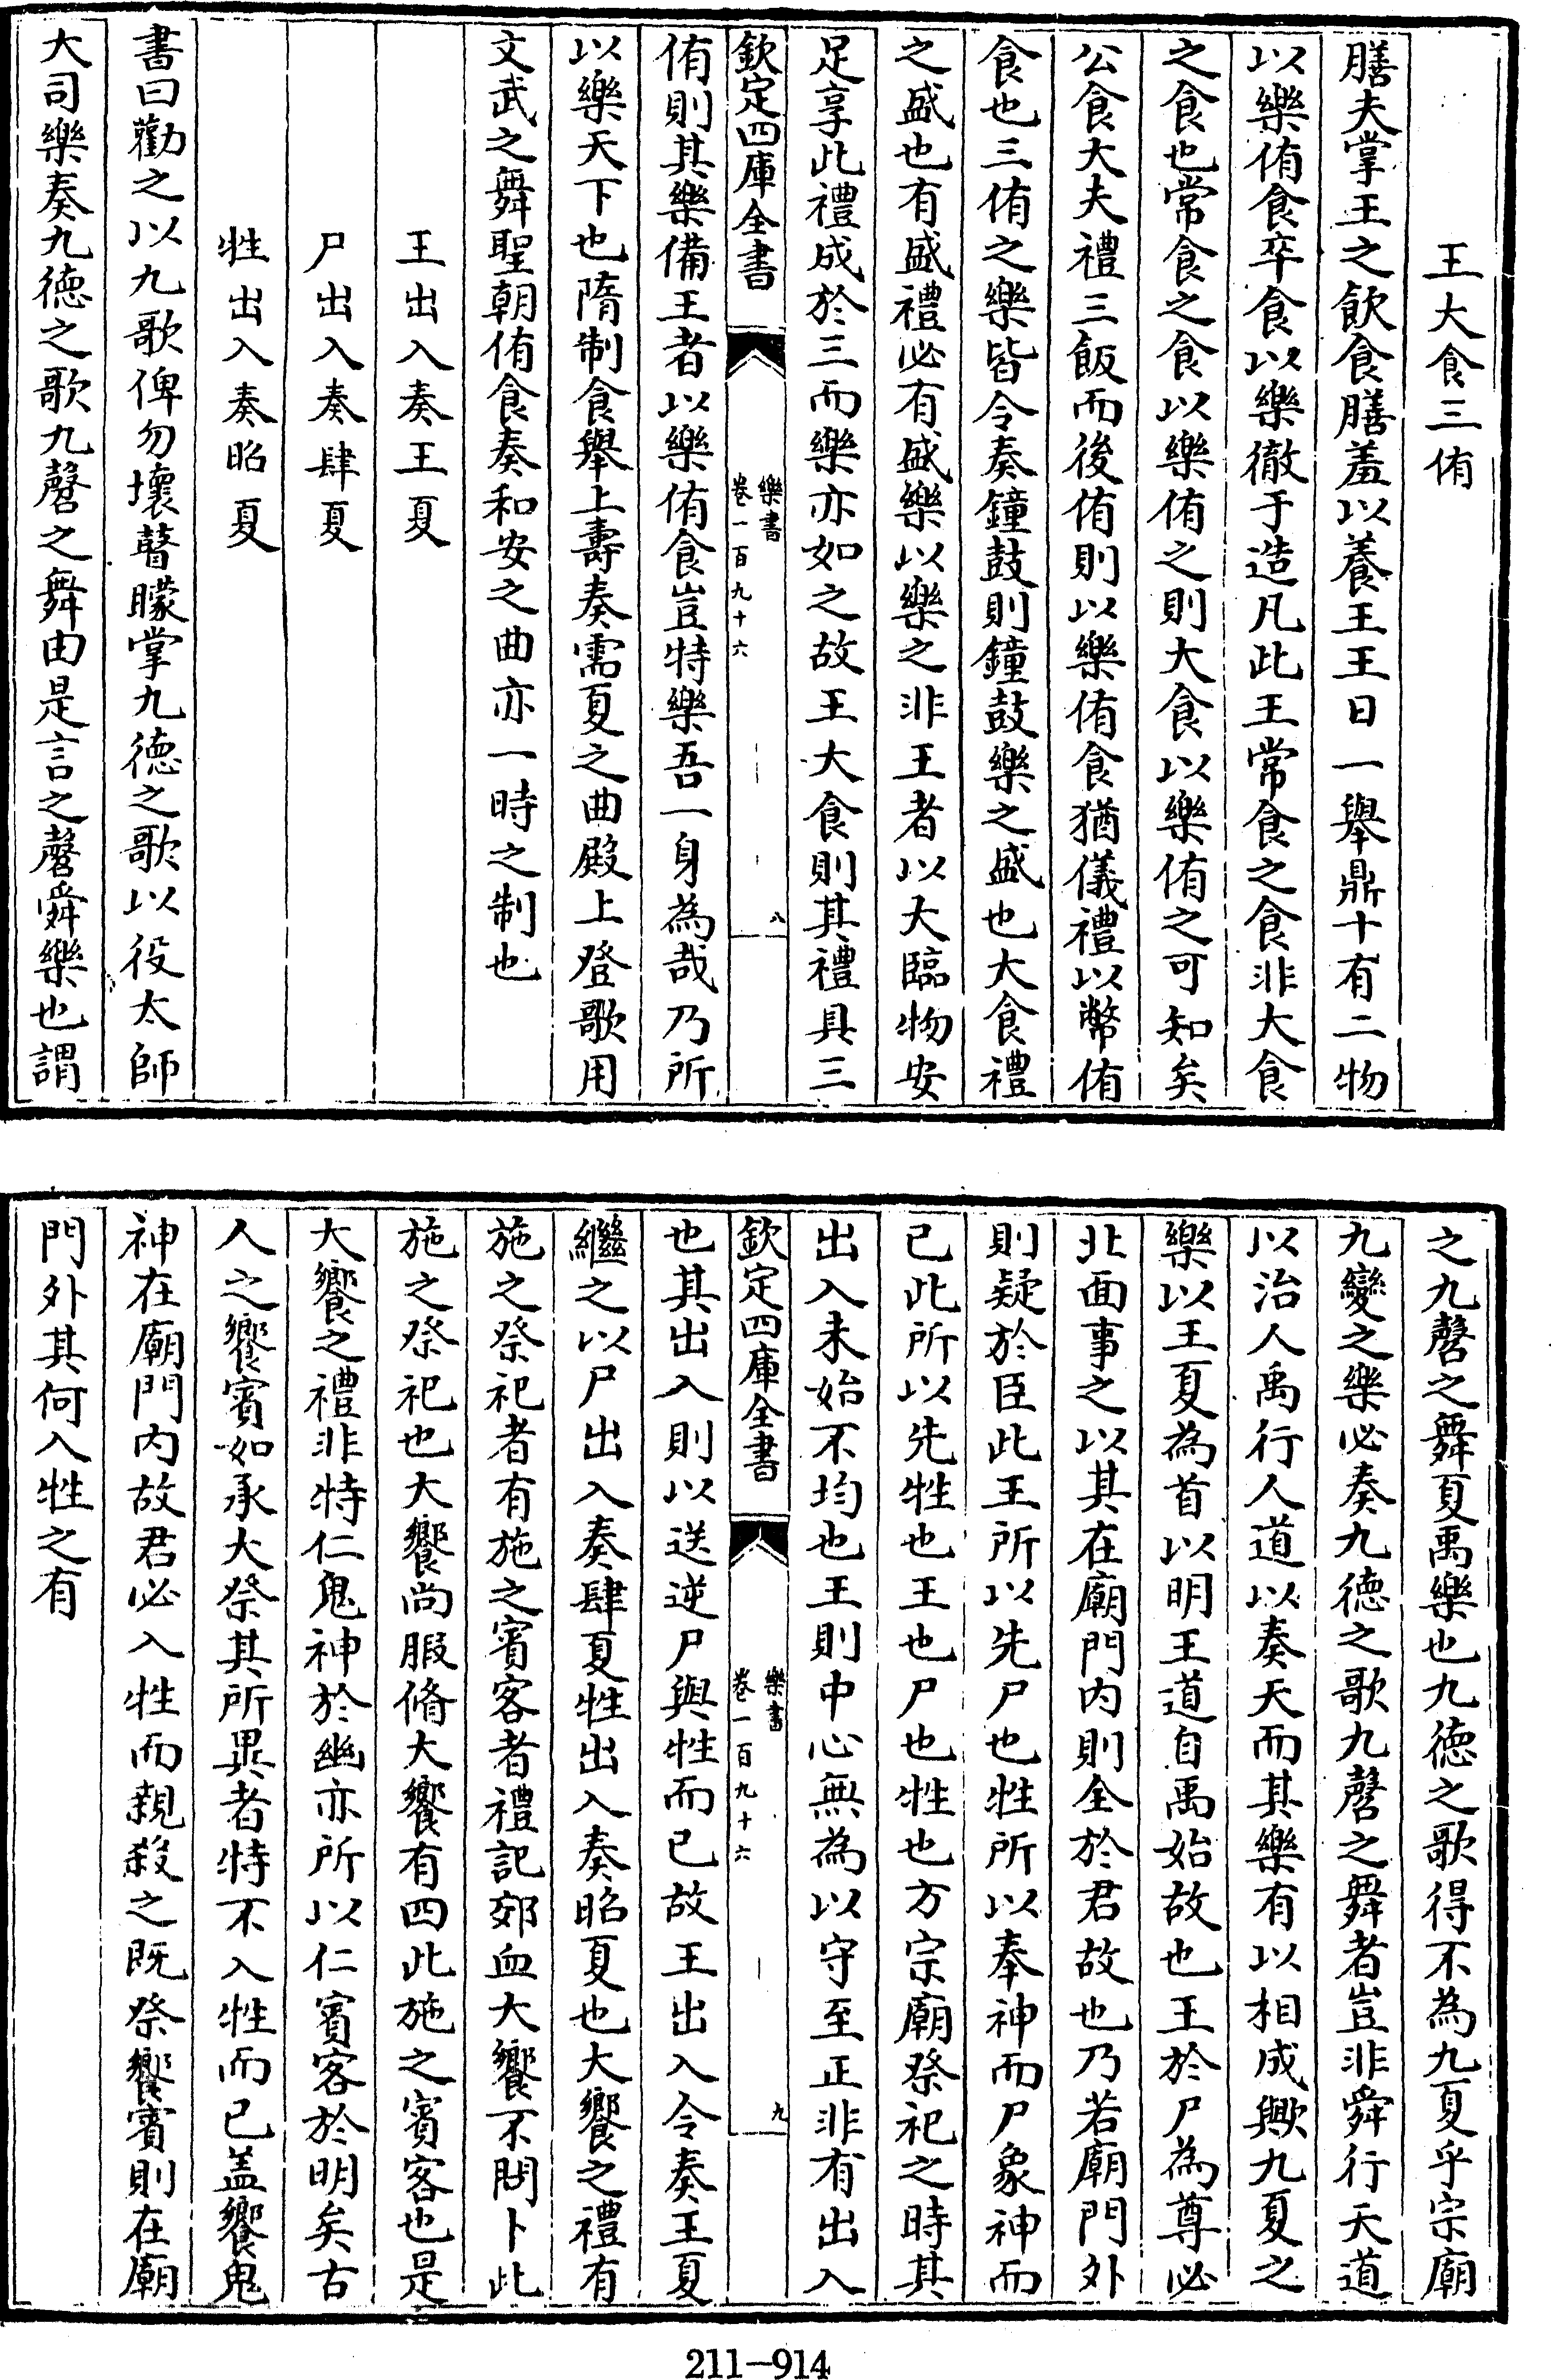 王大食三侑
膳夫掌王之飲食膳羞以養王王日一舉鼎十有二物
以樂侑食卒食以樂徹于造凡此王常食之食非大食
之食也常食之食以樂侑之則大食以樂侑之可知矣
公食大夫禮三飯而後侑則以樂侑食猶儀禮以幣侑
食也三侑之樂皆令奏鐘鼓則鐘鼓樂之盛也大食禮
之盛也有盛禮必有盛樂以樂之非王者以大臨物安
足享此禮成於三而樂亦如之故王大食則其禮具三
欽定四庫全書
樂書
卷一百九十六
八
侑則其樂備王者以樂侑食豈特樂吾一身為哉乃所
以樂天下也隋制食舉上壽奏需夏之曲殿上登歌用
文武之舞聖朝侑食奏和安之曲亦一時之制也
王出入奏王夏
尸出入奏肆夏
牲出入奏昭夏
書曰勸之以九歌俾勿壞瞽矇掌九德之歌以役太師
大司樂奏九德之歌九㲈之舞由是言之㲈舜樂也謂
之九㲈之舞夏禹樂也九德之歌得不為九夏乎宗廟
九變之樂必奏九德之歌九㲈之舞者豈非舜行天道
以治人禹行人道以奏天而其樂有以相成歟九夏之
樂以王夏為首以明王道自禹始故也王於尸為尊必
北面事之以其在廟門内則全於君故也乃若廟門外
則疑於臣此王所以先尸也牲所以奉神而尸象神而
已此所以先牲也王也尸也牲也方宗廟祭祀之時其
出入未始不均也王則中心無為以守至正非有出入
欽定四庫全書
樂書
卷一百九十六
九
也其出入則以送逆尸與牲而已故王出入令奏王夏
繼之以尸出入奏肆夏牲出入奏昭夏也大饗之禮有
施之祭祀者有施之賓客者禮記郊血大饗不問卜此
施之祭祀也大饗尚腶脩大饗有四此施之賓客也是
大饗之禮非特仁鬼神於幽亦所以仁賓客於明矣古
人之饗賓如承大祭其所異者特不入牲而已盖饗鬼
神在廟門内故君必入牲而親殺之既祭饗賓則在廟
門外其何入牲之有
211—914